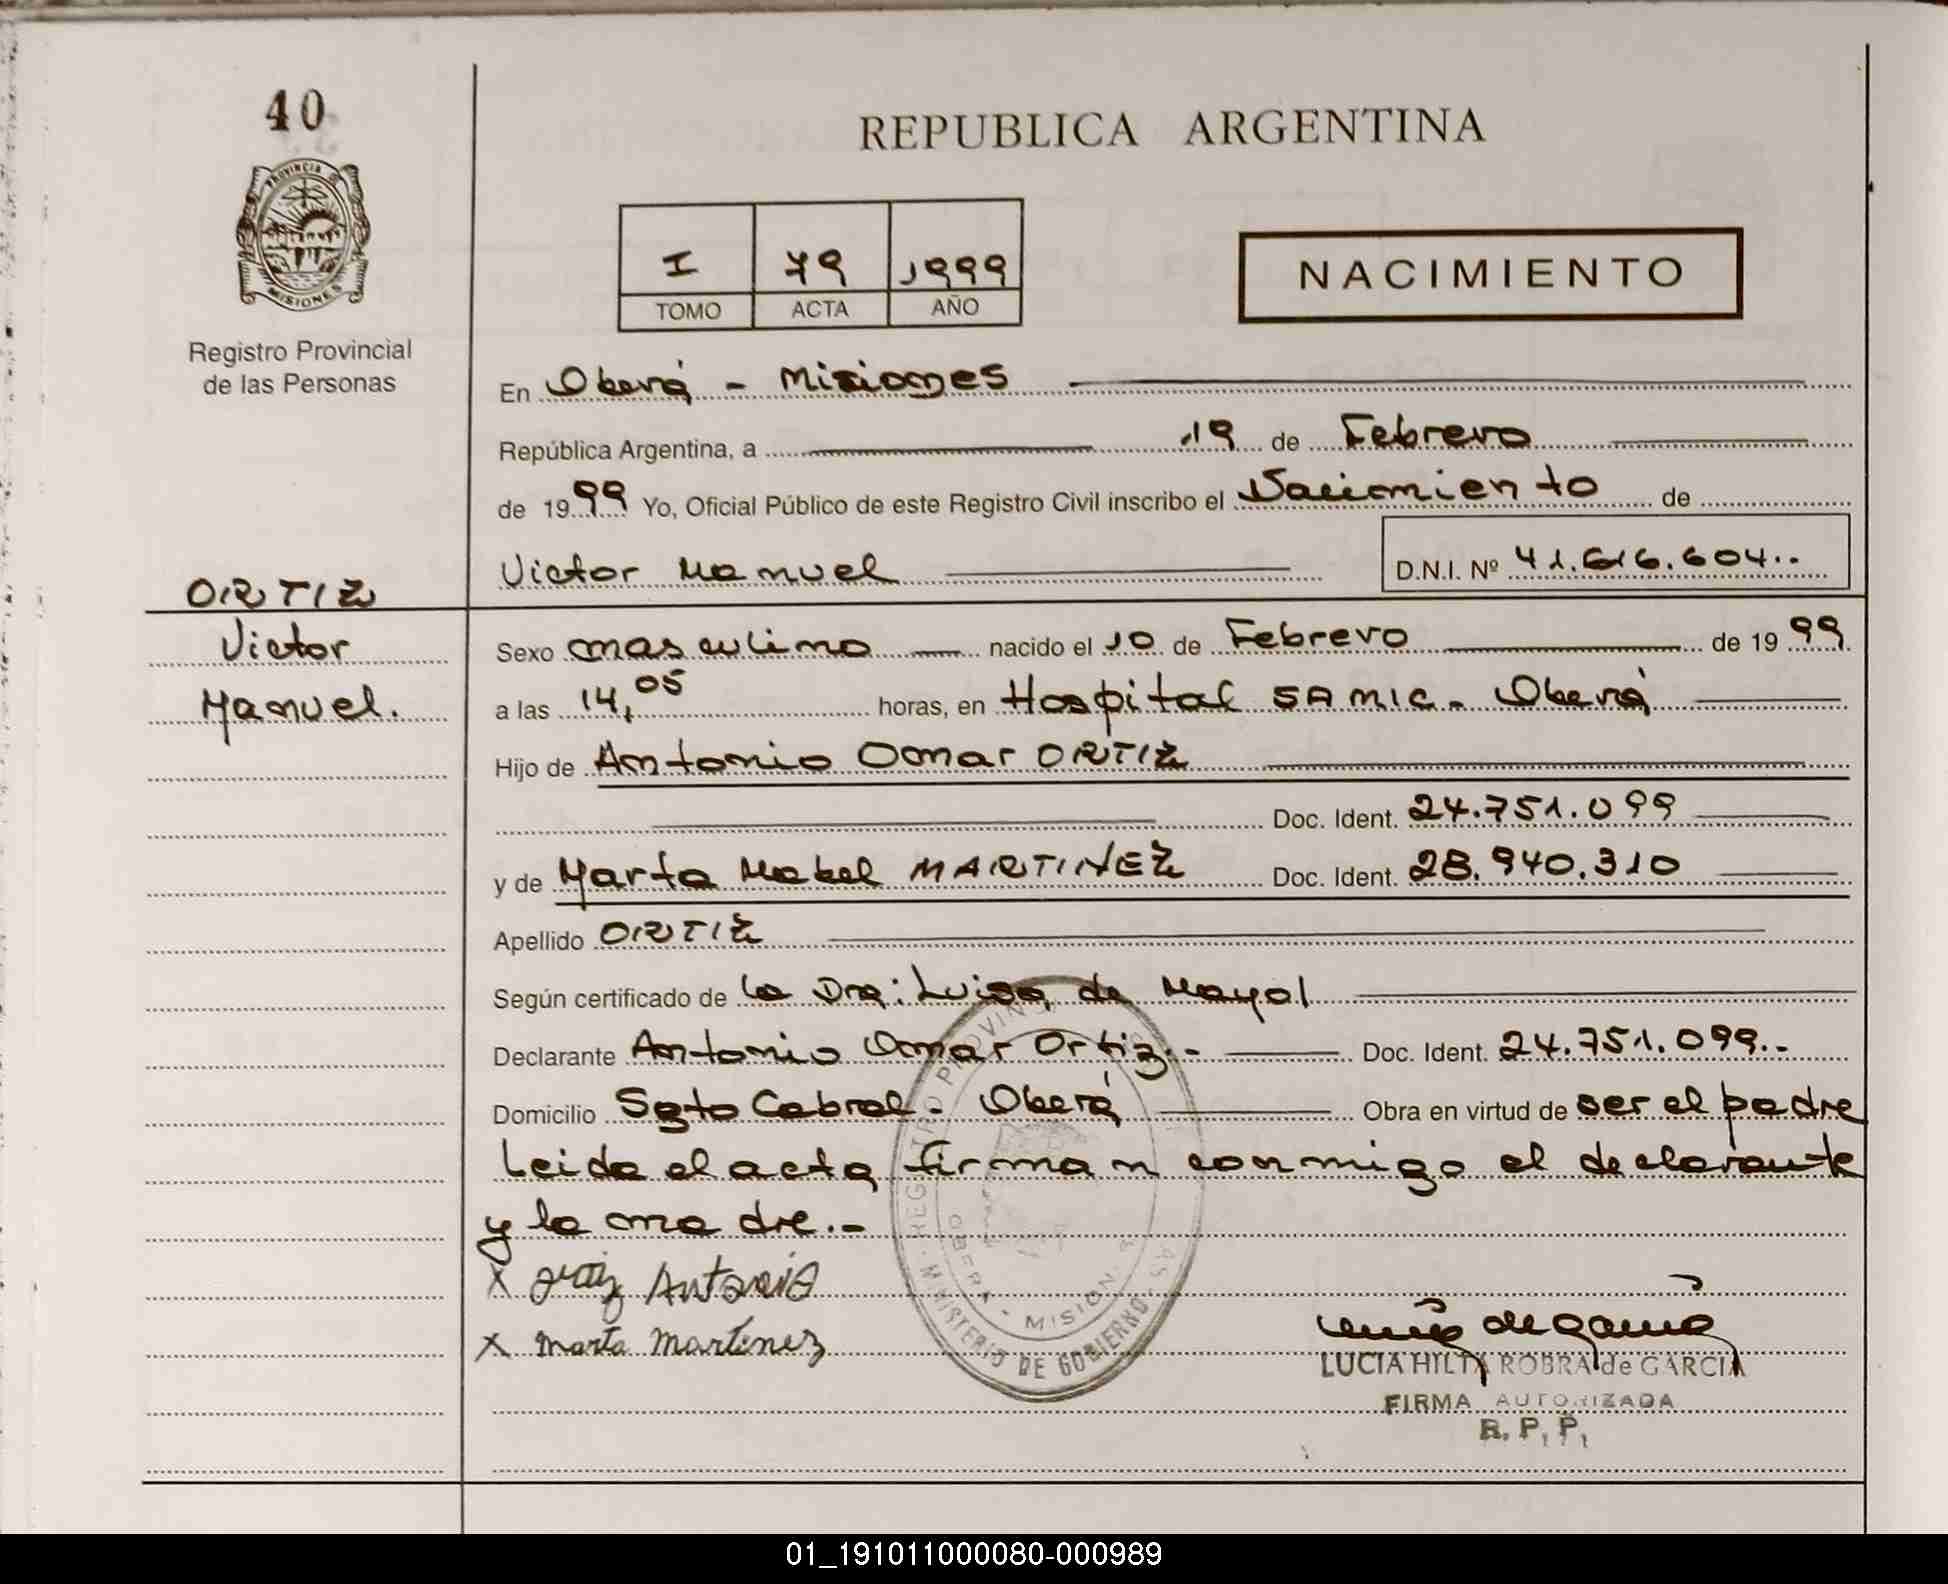 40
PROVINCIA DE
MISIONES
Registro Provincial
de las Personas
REPUBLICA ARGENTINA
I 79 1999
TOMO ACTA AÑO
NACIMIENTO
En Oberá - Misiones
República Argentina, a 19 de Febrero
de 1999 Yo, Oficial Público de este Registro Civil inscribo el Nacimiento de
Victor Manuel D.N.I. Nº 41.616.604..
ORTIZ
Victor
Manuel.
Sexo masculino nacido el 10 de Febrero de 1999
a las 14,05 horas, en Hospital SAMIC. Oberá
Hijo de Antonio Omar ORTIZ
Doc. Ident. 24.751.099
y de Marta Mabel MARTINEZ Doc. Ident. 28.940.310
Apellido ORTIZ
Según certificado de la Dra: Luisa de Mayol
Declarante Antonio Omar Ortiz.- Doc. Ident. 24.751.099.-
Domicilio Sgto Cabral. Oberá Obra en virtud de ser el padre
Leida el acta, firman conmigo el declarante
y la madre.-
X Ortiz Antonio
X Marta Martinez
REGISTRO PROVINCIAL
MINISTERIO DE GOBIERNO
OBERA - MISIONES
LUCIA HILTA ROBRA de GARCIA
FIRMA AUTORIZADA
R. P. P.
01_191011000080-000989